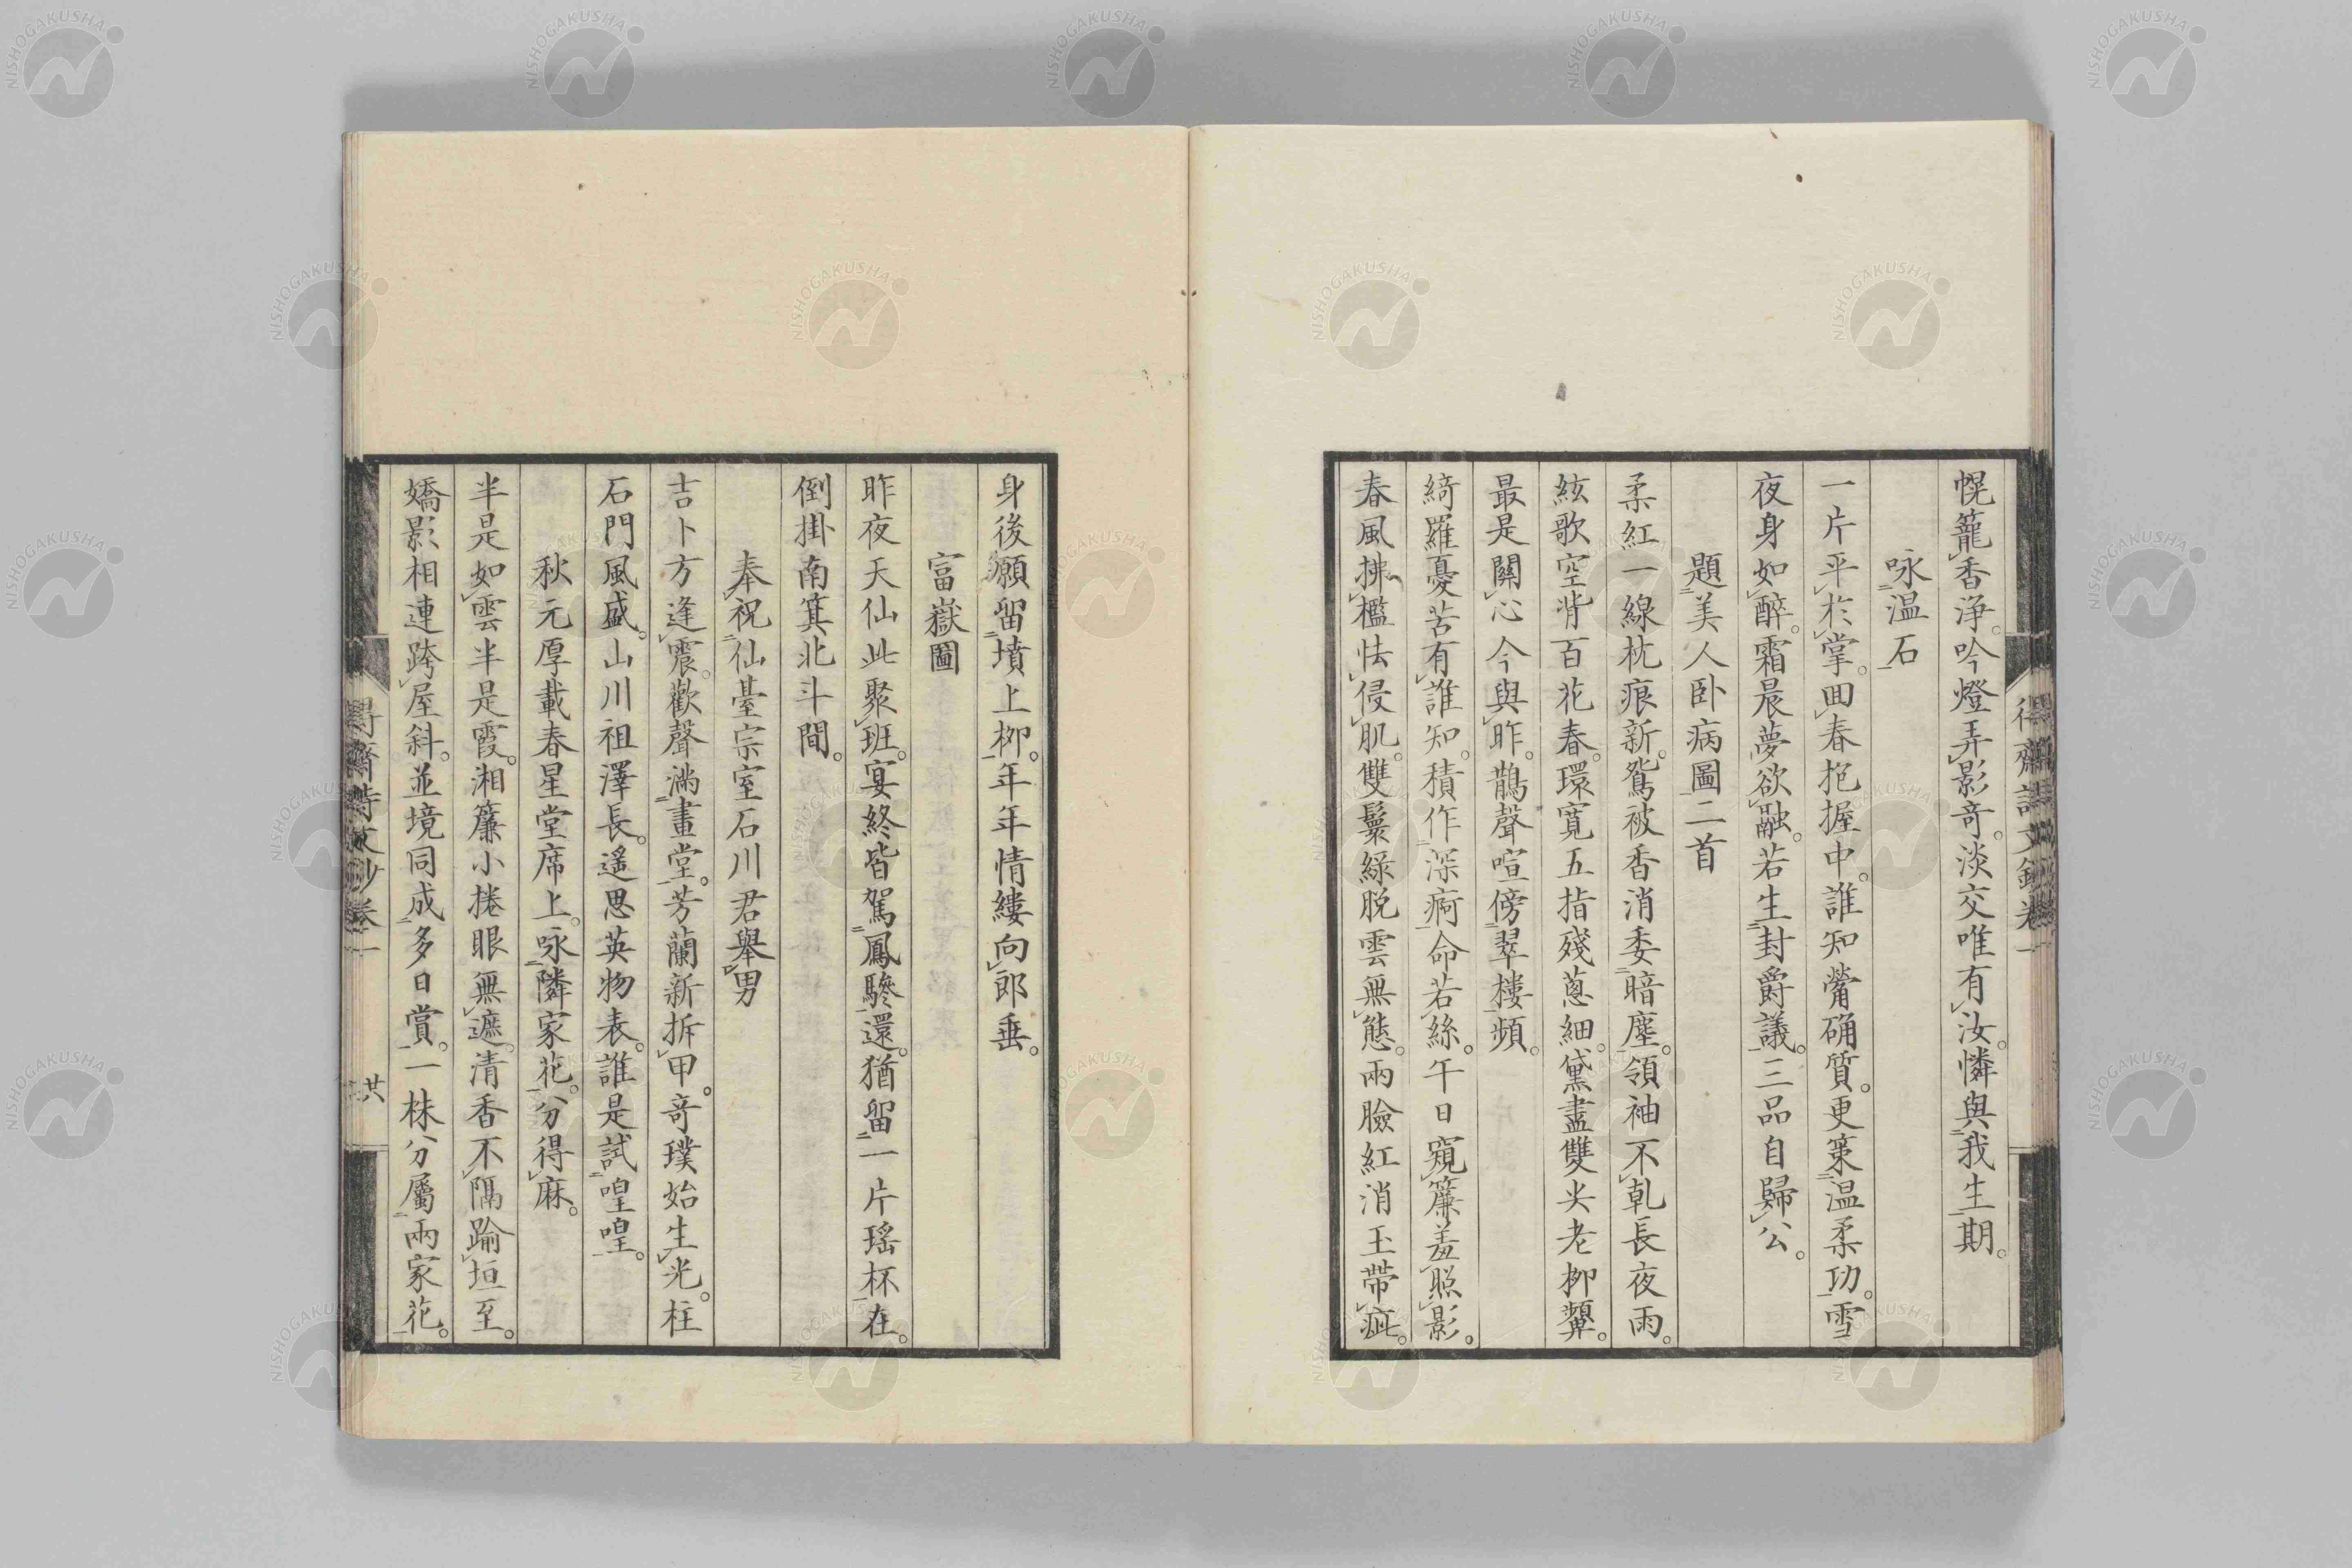 幌籠香浄。吟燈弄影奇。淡交唯有汝。憐與我生期。
咏温石
一片平於掌。回春抱握中。誰知觜确質。更策温柔功。雪
夜身如醉。霜晨夢欲融。若生封爵議。三品自歸公。
題美人卧病圖二首
柔紅一線枕痕新。鴛被香消委暗塵。領袖不乾長夜雨。
絃歌空背百花春。環寛五指殘蔥細。黛盡雙尖老柳顰。
最是關心今與昨。鵲聲喧傍翠樓頻。
綺羅憂苦有誰知。積作深痾命若絲。午日窺簾羞照影。
春風拂檻怯侵肌。雙鬟綠脱雲無態。兩臉紅消玉帶疵。
身後願留墳上柳。年年情縷向郎垂。
富嶽圖
昨夜天仙此聚班。宴終皆駕鳳驂還。猶留一片瑤杯在。
倒掛南箕北斗間。
奉祝仙臺宗室石川君擧男
吉卜方逢震。歡聲滿畫堂。芳蘭新拆甲。奇璞始生光。柱
石門風盛。山川祖澤長。遥思英物表。誰是試喤喤。
秋元厚載春星堂席上。咏隣家花。分得麻。
半是如雲半是霞。湘簾小捲眼無遮。清香不隔踰垣至。
嬌影相連跨屋斜。並境同成多日賞。一株分屬兩家花。
得齋詩文鈔卷一
得齋詩文鈔卷一
廿